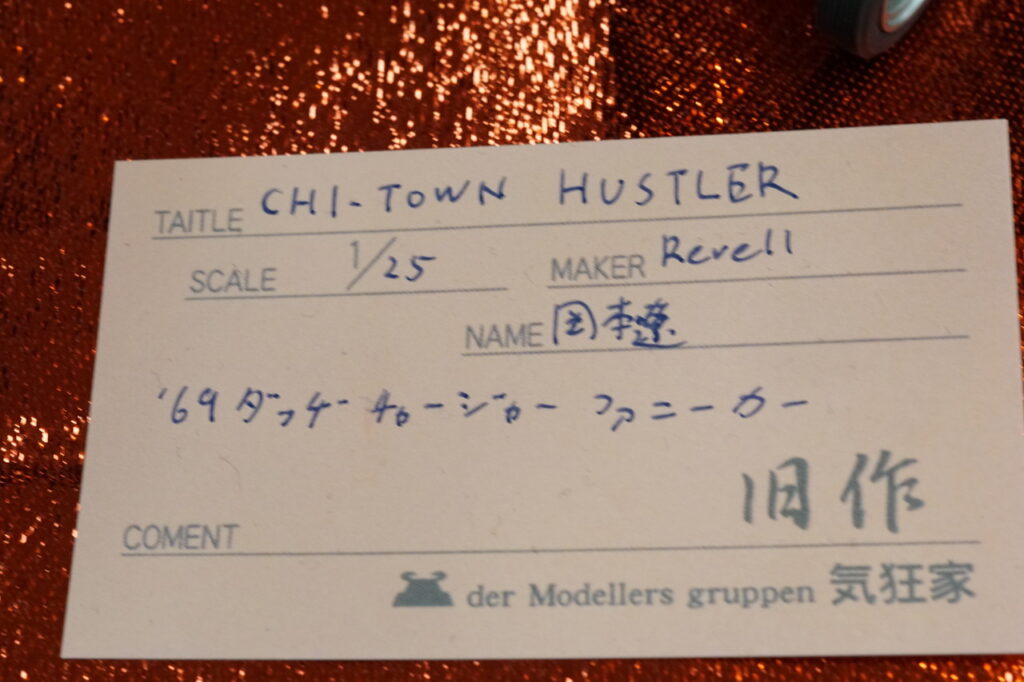 TAITLE CHI-TOWN HUSTLER
SCALE 1/25 MAKER Revell
NAME
'69 ダッチー チャージャー ファニーカー
旧作
COMENT
der Modellers gruppen 気狂家